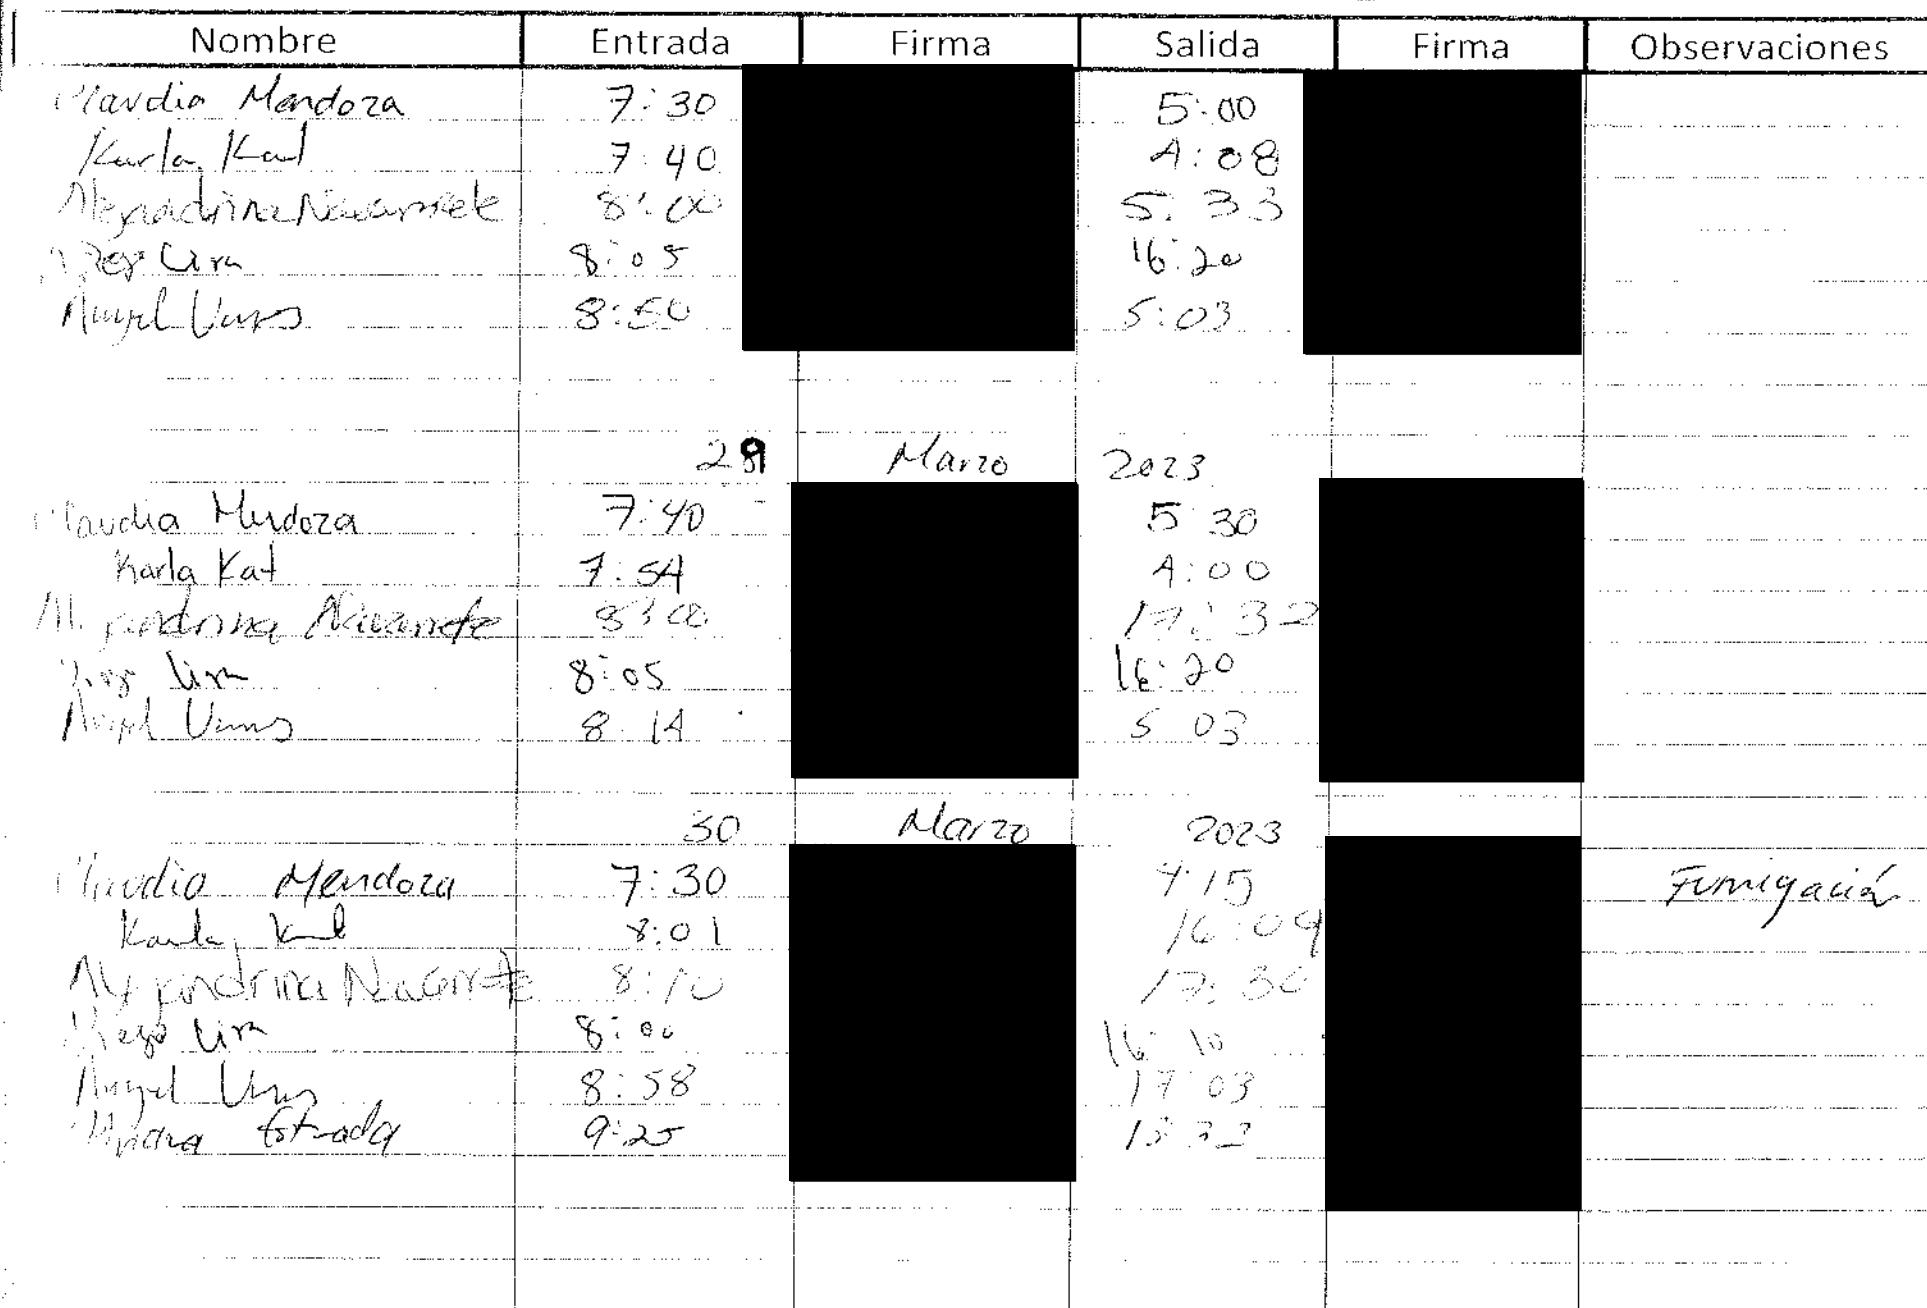 Nombre Entrada Firma Salida Firma Observaciones
Claudia Mendoza 7:30 5:00
Karla Kat 7:40 4:08
Alejandrina Navarrete 8:00 5:33
Diego Lira 8:05 16:20
Angel 8:50 5:03
29 Marzo 2023
Claudia Mendoza 7:40 5:30
Karla Kat 7:54 4:00
Alejandrina Navarrete 8:00 17:32
Diego Lira 8:05 16:20
Angel 8:14 5:03
30 Marzo 2023
Claudia Mendoza 7:30 4:15 Fumigación
Karla Kat 8:01 16:09
Alejandrina Navarrete 8:10 17:30
Diego Lira 8:00 16:10
Angel 8:58 17:03
Estrada 9:25